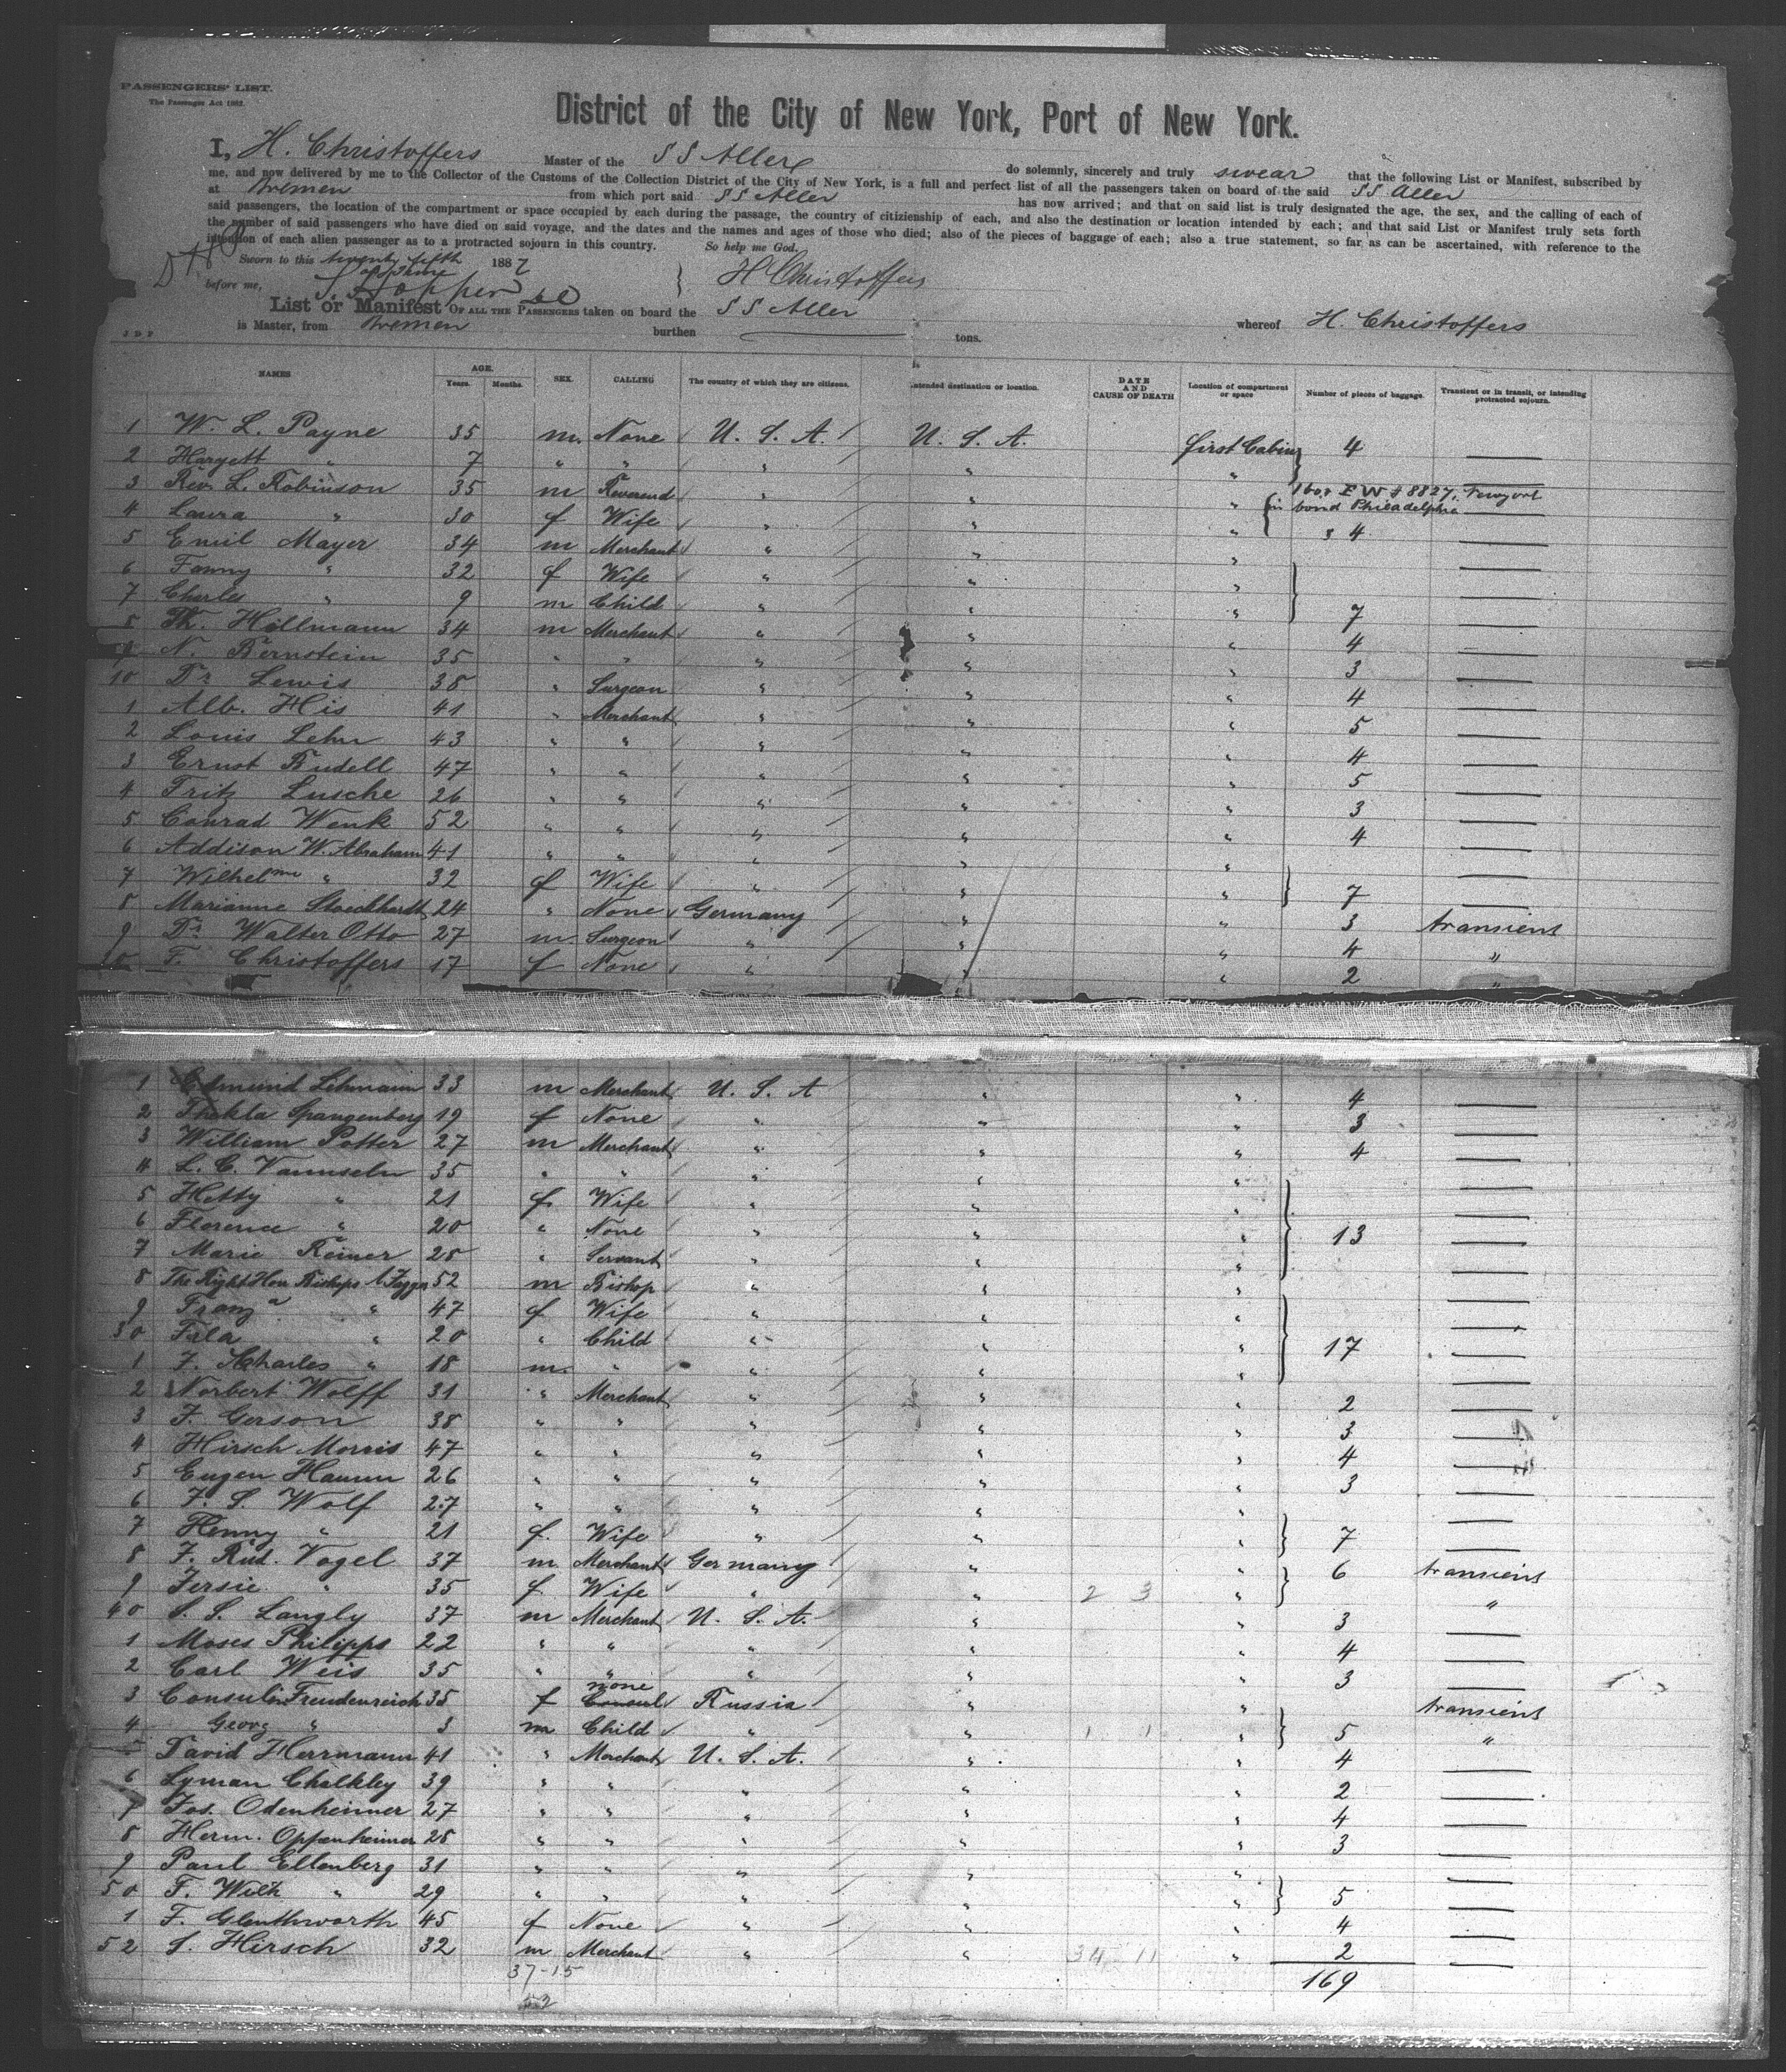 PASSENGERS' LIST.
The Passenger Act 1882.
District of the City of New York, Port of New York.
I, H. Christoffers Master of the SS Aller do solemnly, sincerely and truly swear that the following List or Manifest, subscribed by
me, and now delivered by me to the Collector of the Customs of the Collection District of the City of New York, is a full and perfect list of all the passengers taken on board of the said SS Aller
at Bremen from which port said SS Aller has now arrived; and that on said list is truly designated the age, the sex, and the calling of each of
said passengers, the location of the compartment or space occupied by each during the passage, the country of citizienship of each, and also the destination or location intended by each; and that said List or Manifest truly sets forth
the number of said passengers who have died on said voyage, and the dates and the names and ages of those who died; also of the pieces of baggage of each; also a true statement, so far as can be ascertained, with reference to the
intention of each alien passenger as to a protracted sojourn in this country. So help me God.
Sworn to this twenty fifth 1887
before me, H Christoffers
List or Manifest OF ALL THE PASSENGERS taken on board the SS Aller whereof H. Christoffers
is Master, from Bremen burthen tons.
NAMES AGE. Years. Months. SEX. CALLING The country of which they are citizens. Intended destination or location. DATE AND CAUSE OF DEATH Location of compartment or space Number of pieces of baggage. Transient or in transit, or intending protracted sojourn.
1 W. L. Payne 35 m. None U. S. A. U. S. A. first Cabin 4
2 Haryett " 7 " " " " "
3 Rev. L. Robinson 35 m Reverend " " " 1 box E W # 8827,
4 Laura " 30 f Wife " " " in bond Philadelphia 4
5 Emil Mayer 34 m Merchant " " "
6 Fanny " 32 f Wife " " "
7 Charles " 9 m Child " " " 7
8 Th. Hollmann 34 m Merchant " " " 4
9 N. Bernstein 35 " " " " " 3
10 Dr. Lewis 38 " Surgeon " " " 4
1 Alb. His 41 " Merchant " " " 5
2 Louis Lehr 43 " " " " " 4
3 Ernst Budell 47 " " " " " 5
4 Fritz Lusche 26 " " " " " 3
5 Conrad Wenk 52 " " " " " 4
6 Addison W. Abraham 41 " " " " "
7 Wilhelme " 32 f Wife " " " 7
8 Marianne Stoeckhardt 24 " None Germany " " 3 transient
9 Dr. Walter Otto 27 m. Surgeon " " " 4 "
10 F. Christoffers 17 f None " " " 2 "
1 Edmund Lehmann 33 m Merchant U. S. A " " 4
2 Thekla Spangenberg 19 f None " " " 3
3 William Potter 27 m Merchant " " " 4
4 L. C. 35 " " " " "
5 Hetty " 21 f. Wife " " "
6 Florence " 20 " None " " " 13
7 Marie Reiner 28 " Servant " " "
8 The Right Hon Bishops 52 m Bishop " " "
9 " 47 f Wife " " "
30 " 20 " Child " " " 17
1 F. Charles " 18 m. " " " "
2 Norbert Wolff 31 " Merchant " " " 2
3 F. Gerson 38 " " " " " 3
4 Hirsch Morris 47 " " " " " 4
5 Eugen Hamm 26 " " " " " 3
6 F. S. Wolf 27 " " " " "
7 Henny " 21 f. Wife " " " 7
8 F. Rud. Vogel 37 m Merchant Germany " " 6 transient
9 Jersie " 35 f. Wife " " 2 3 " "
40 S. S. Langly 37 m Merchant U. S. A. " " 3
1 Moses Philipps 22 " " " " " 4
2 Carl Weis 35 " " " " " 3
3 Consulin Freudenreich 35 f none Consul Russia " " transient
4 Georg " 3 m Child " " 1 1 " 5 "
5 David Herrmann 41 " Merchant U. S. A. " " 4
6 Lyman Chalkley 39 " " " " " 2
7 Jos. Odenheimer 27 " " " " " 4
8 Herm. Oppenheimer 28 " " " " " 3
9 Paul Ellenberg 31 " " " " "
50 F. Wilh " 29 " " " " " 5
1 F. Glenthworth 45 f None " " " 4
52 S. Hirsch 32 m Merchant " " 34 11 " 2
37-15 169
52